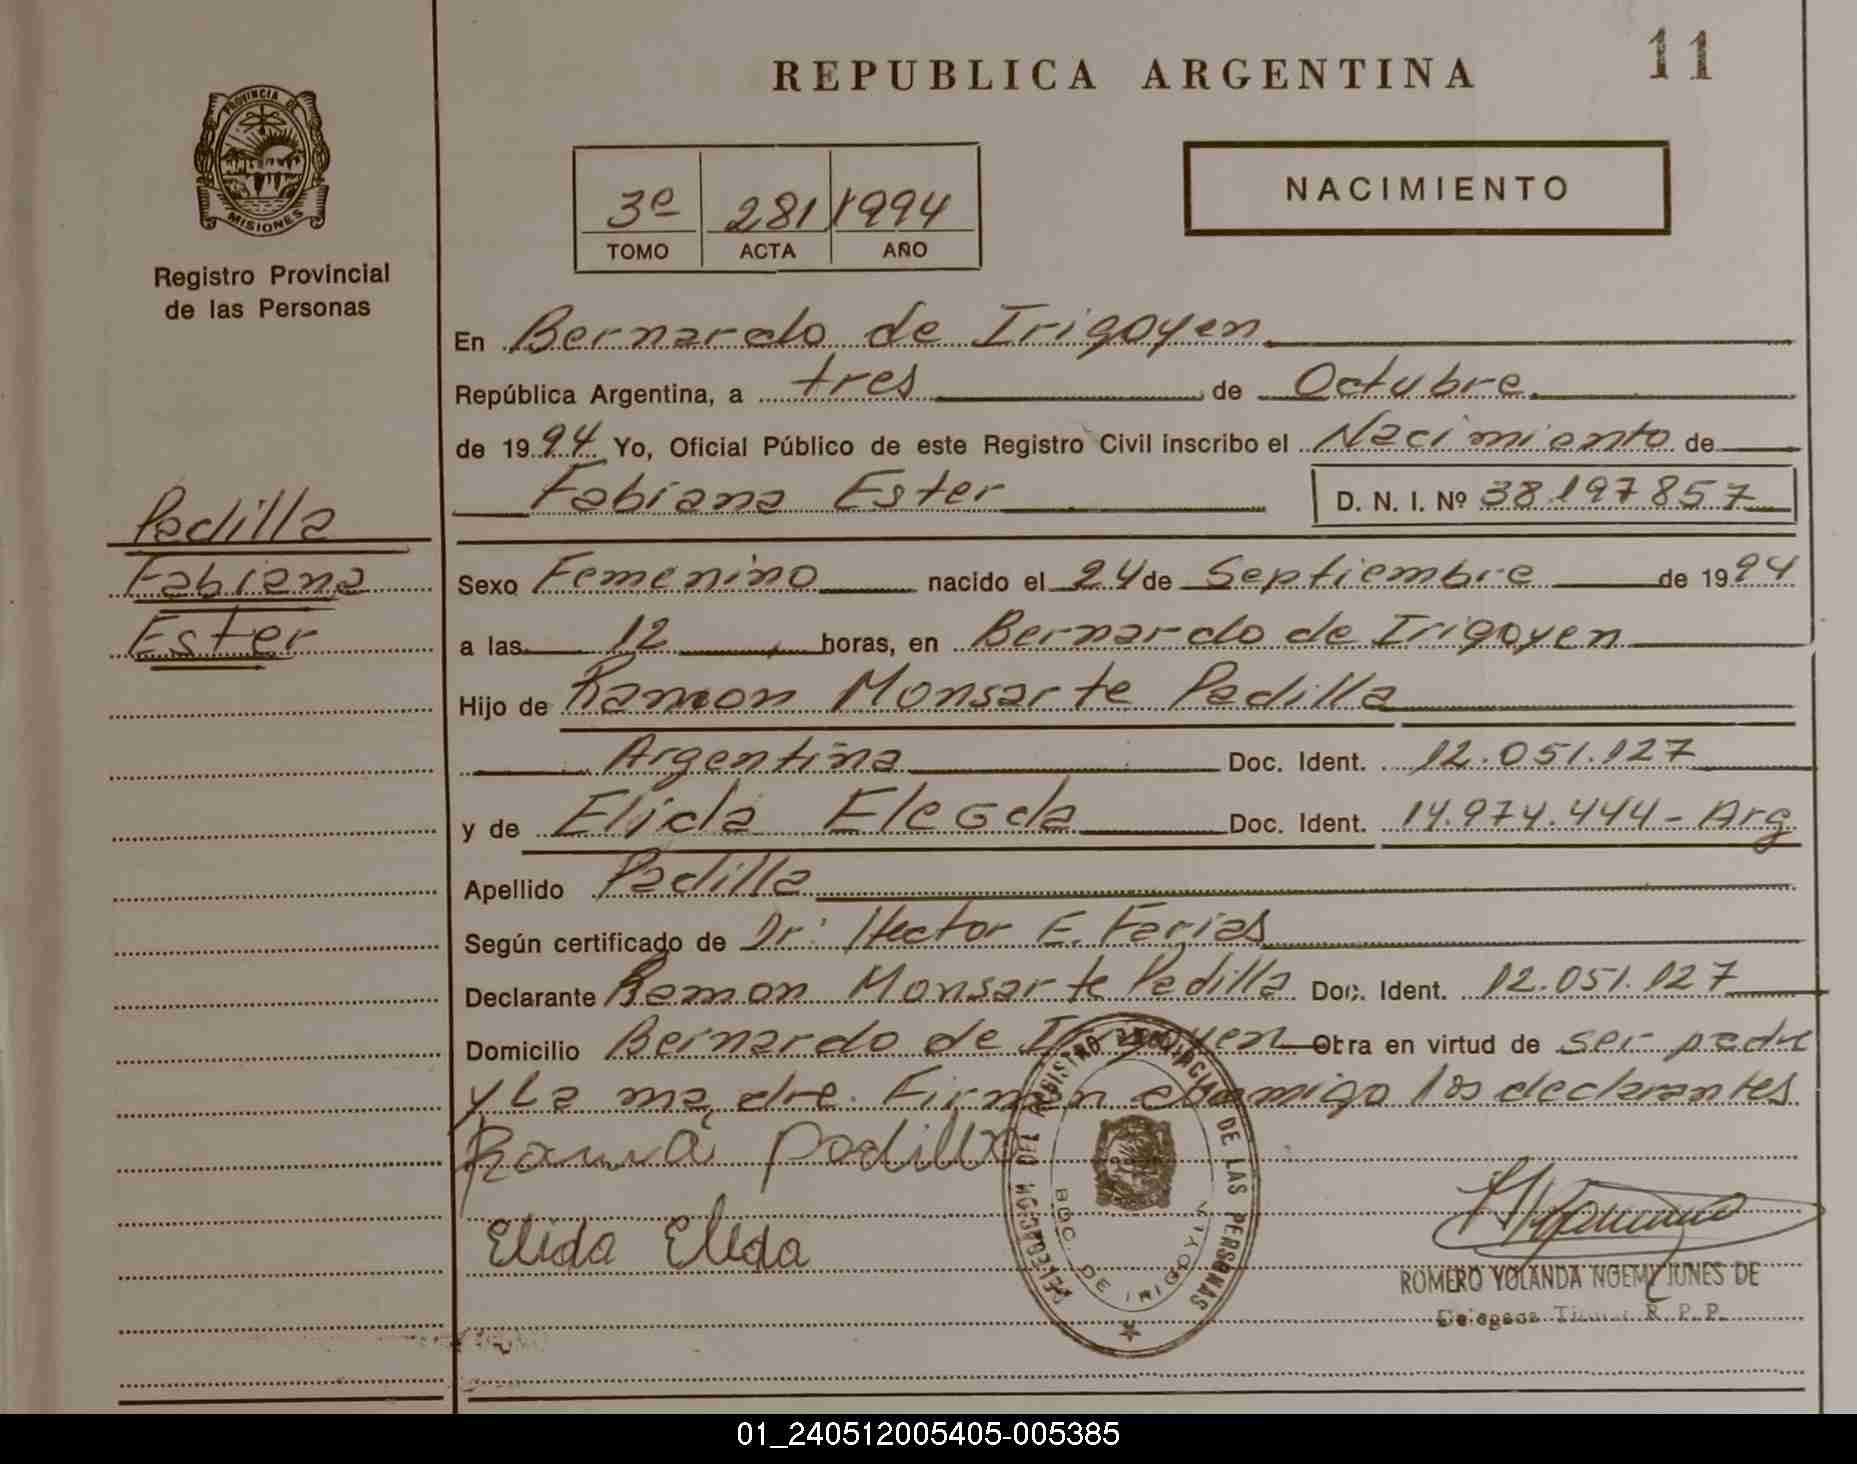 REPUBLICA ARGENTINA
11
PROVINCIA DE
MISIONES
Registro Provincial
de las Personas
3º 281 1994
TOMO ACTA AÑO
NACIMIENTO
En Bernardo de Irigoyen
República Argentina, a tres de Octubre
de 1994 Yo, Oficial Público de este Registro Civil inscribo el Nacimiento de
Fabiana Ester D. N. I. Nº 38.197857
Padilla
Fabiana
Ester
Sexo Femenino nacido el 24 de Septiembre de 1994
a las 12 horas, en Bernardo de Irigoyen
Hijo de Ramon Monsarte Padilla
Argentina Doc. Ident. 12.051.127
y de Elida Eleoda Doc. Ident. 14.974.444 - Arg
Apellido Padilla
Según certificado de Dr: Hector E. Farias
Declarante Ramon Monsarte Padilla Doc. Ident. 12.051.127
Domicilio Bernardo de Irigoyen Obra en virtud de ser padre
y La madre. Firman conmigo los declarantes
Padilla
Elida
REGISTRO PROVINCIAL DE LAS PERSONAS
BDO. DE IRIGOYEN
ROMERO YOLANDA NOEMI JUNES DE
Delegada Titular R. P. P.
01_240512005405-005385